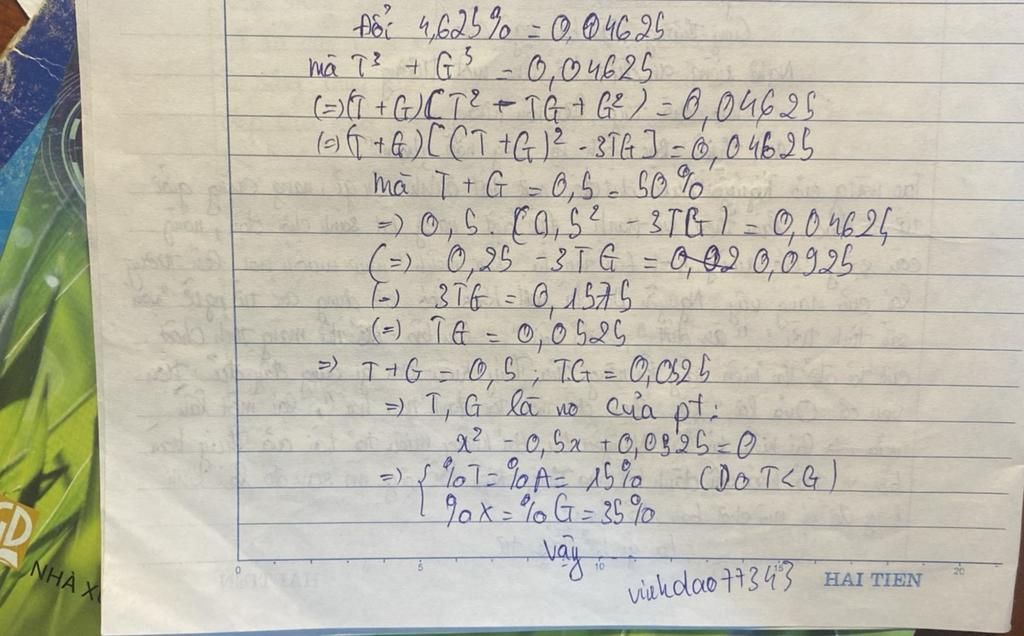 Đổi 4,625% = 0,04625
mà T³ + G³ = 0,04625
(=) (T + G) (T² - TG + G²) = 0,04625
(=) (T + G) [(T + G)² - 3TG] = 0,04625
mà T + G = 0,5 = 50%
=) 0,5 (0,5² - 3TG) = 0,04625
(=) 0,25 - 3TG = 0,0925
(=) 3TG = 0,1575
(=) TG = 0,0525
=) T + G = 0,5 ; TG = 0,0525
=) T, G là no của pt:
x² - 0,5x + 0,0525 = 0
=) { %T = %A = 15% (Do T < G)
%X = %G = 35%
Vậy ...
vinhdao77343
0 5 10 15 HAI TIEN 20
GD
NHÀ X